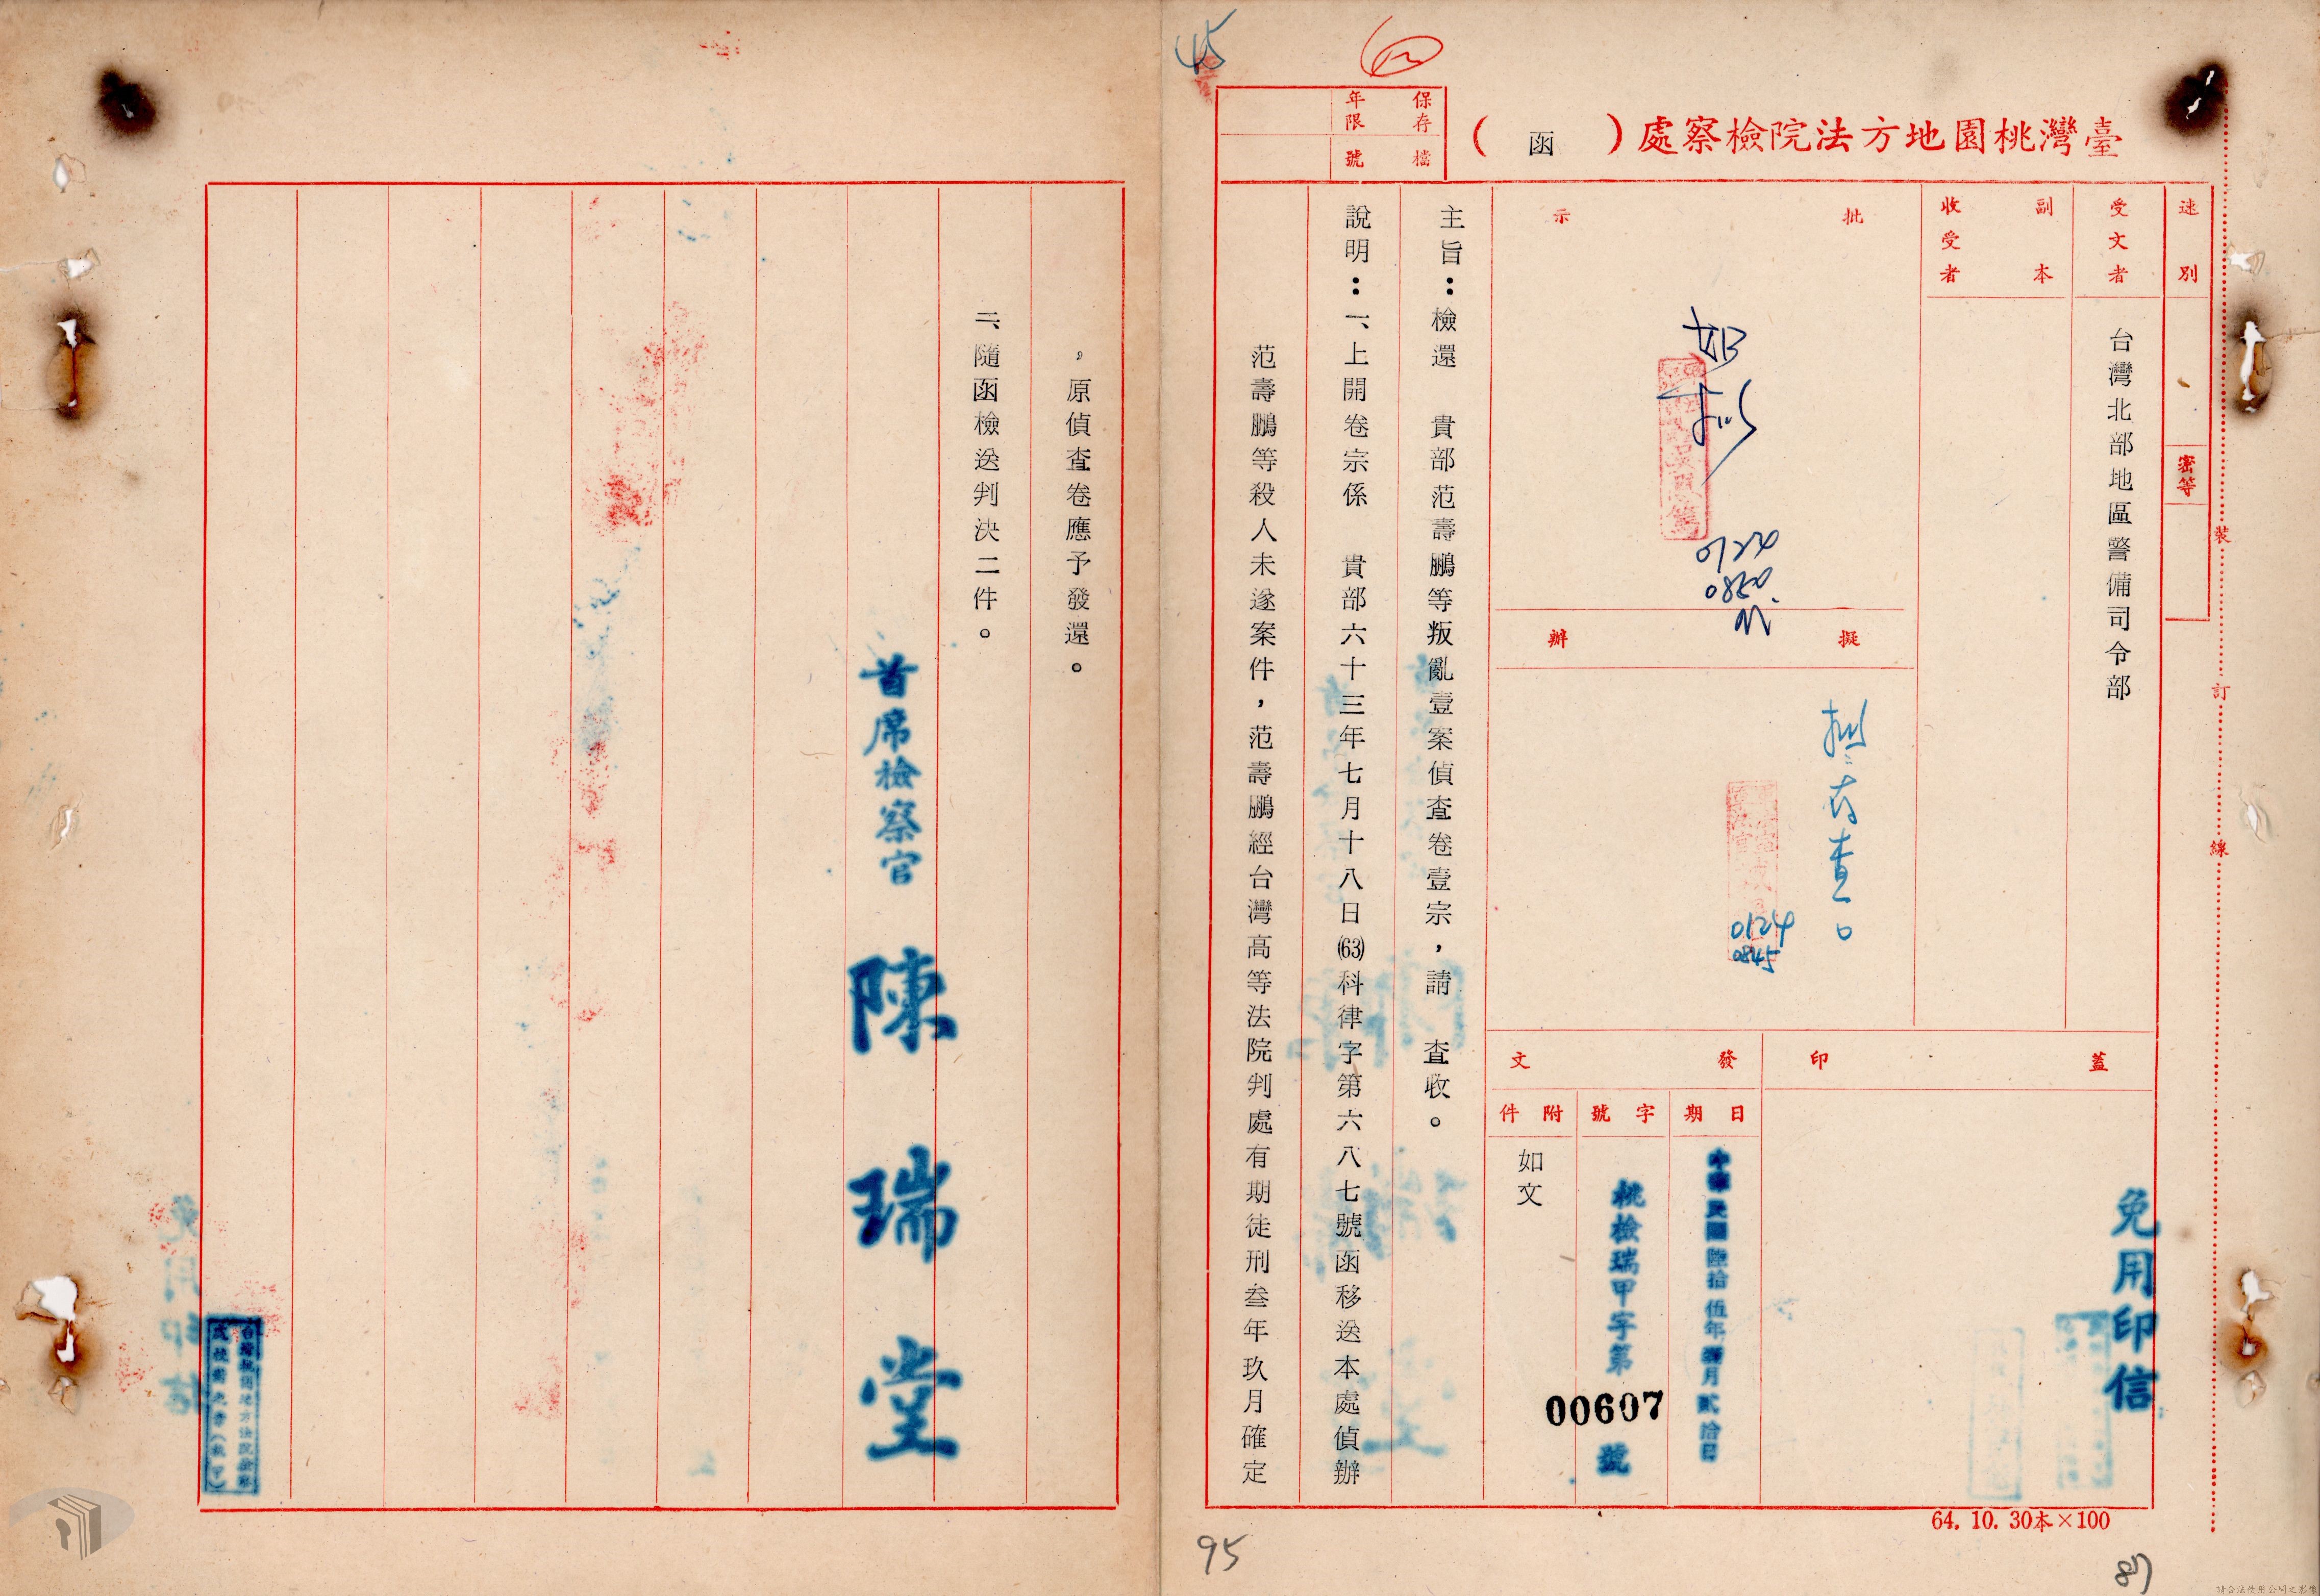 45
臺灣桃園地方法院檢察處（函）
保存年限
檔號
速別
密等
受文者
台灣北部地區警備司令部
副本收受者
批示
如擬
0124
0830
擬辦
擬存查
0124
0845
蓋印
免用印信
發文
日期
中華民國陸拾伍年壹月貳拾日
字號
桃檢瑞甲字第
00607
號
附件
如文
主旨：檢還　貴部范壽鵬等叛亂壹案偵查卷壹宗，請　查收。
說明：一、上開卷宗係　貴部六十三年七月十八日(63)科律字第六八七號函移送本處偵辦
范壽鵬等殺人未遂案件，范壽鵬經台灣高等法院判處有期徒刑叁年玖月確定
，原偵查卷應予發還。
二、隨函檢送判決二件。
首席檢察官　陳瑞堂
裝
訂
線
64. 10. 30本×100
95
87
請合法使用公開之影像